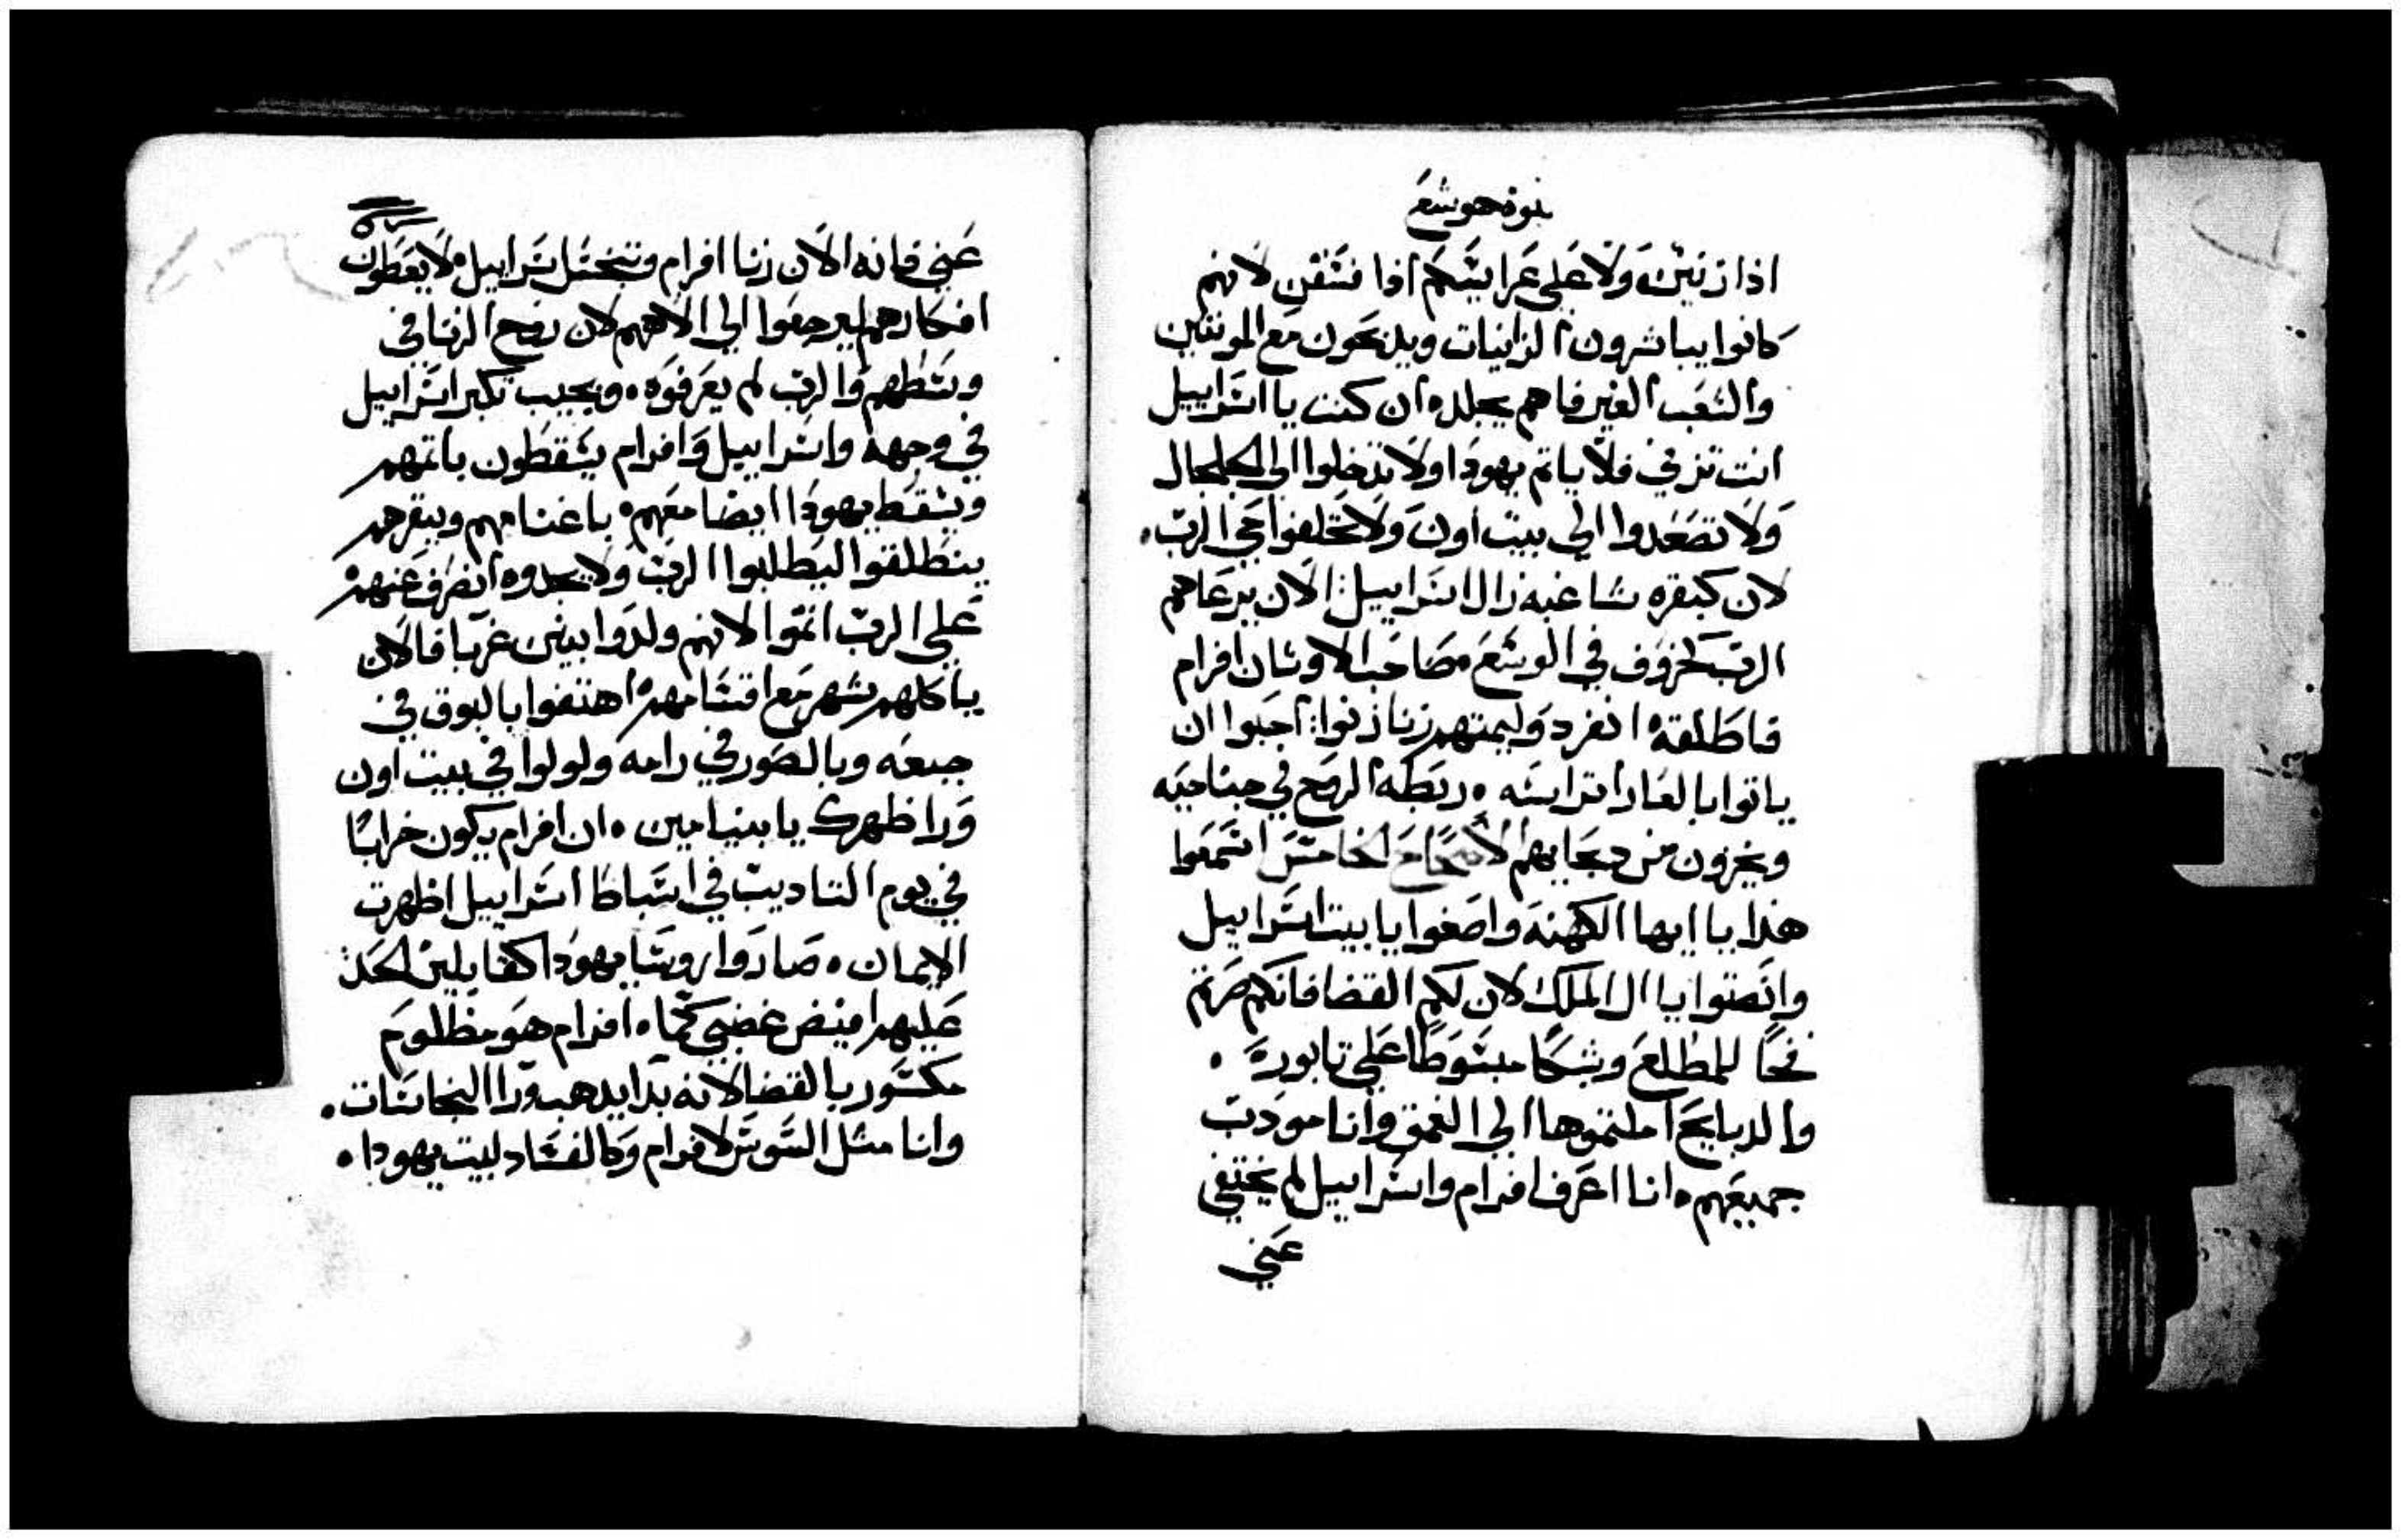 نبوة هوشع
اذا زنين ولا على عرايسكم اذا فسقن لانهم
كانوا يباشرون الزانيات ويدبحون مع المونثين
والشعب الغير فاهم يجلده ان كنت يا اسراييل
انت تزني فلا ياتم يهودا ولا تدخلوا الى الجلجال
ولا تصعدوا الى بيت اون ولا تحلفوا حي الرب.
لان كبقره شاغبه زال اسراييل: الان يرعاهم
الرب كخروف في الوسع مصاحب الاوثان افرام
فاطلقه انفرد وليمتهم زنا زنوا: احبوا ان
ياتوا بالعار اتراسه ه ربطه الريح في جناحيه
ويخزون من دبحايهم الاصحاح الخامس اسمعوا
هذا يا ايها الكهنه واصغوا يا بيت اسراييل
وانصتوا يا ال الملك لان لكم القضا فانكم صرتم
فخاً للمطلع وشبكا مبسوطاً على تابوره .
والدبايح املتموها الى العمق وانا مودب
جميعهم ه انا اعرف افرام واسراييل لم يختفي
عني
عني فانه الان زنا افرام وتنجس اسراييل ه لا يعطون
افكارهم ليرجعوا الى الاههم لان روح الزنا في
وسطهم والرب لم يعرفوه. ويجيب تكبر اسراييل
في وجهه واسراييل وافرام يسقطون باثمهم
ويسقط يهودا ايضا معهم ه باغنامهم وبقرهم
ينطلقوا ليطلبوا الرب ولا يجدوه انصرف عنهم
على الرب اثموا لانهم ولدوا بنين غربا فالان
ياكلهم شهر مع اقسامهم ه اهتفوا بالبوق في
جبعه وبالصور في رامه ولولوا في بيت اون
ورا ظهرك يا بنيامين ه ان افرام يكون خراباً
في يوم التاديب في اسباط اسراييل اظهرت
الايمان ه صاروا روسا يهودا كناقلين الحد
عليهم افيض غضبي كما ه افرام هو مظلوم
مكسور بالقضا لانه بدا يدهب ورا النجاسات.
وانا مثل السوس لافرام وكالفساد لبيت يهودا ه